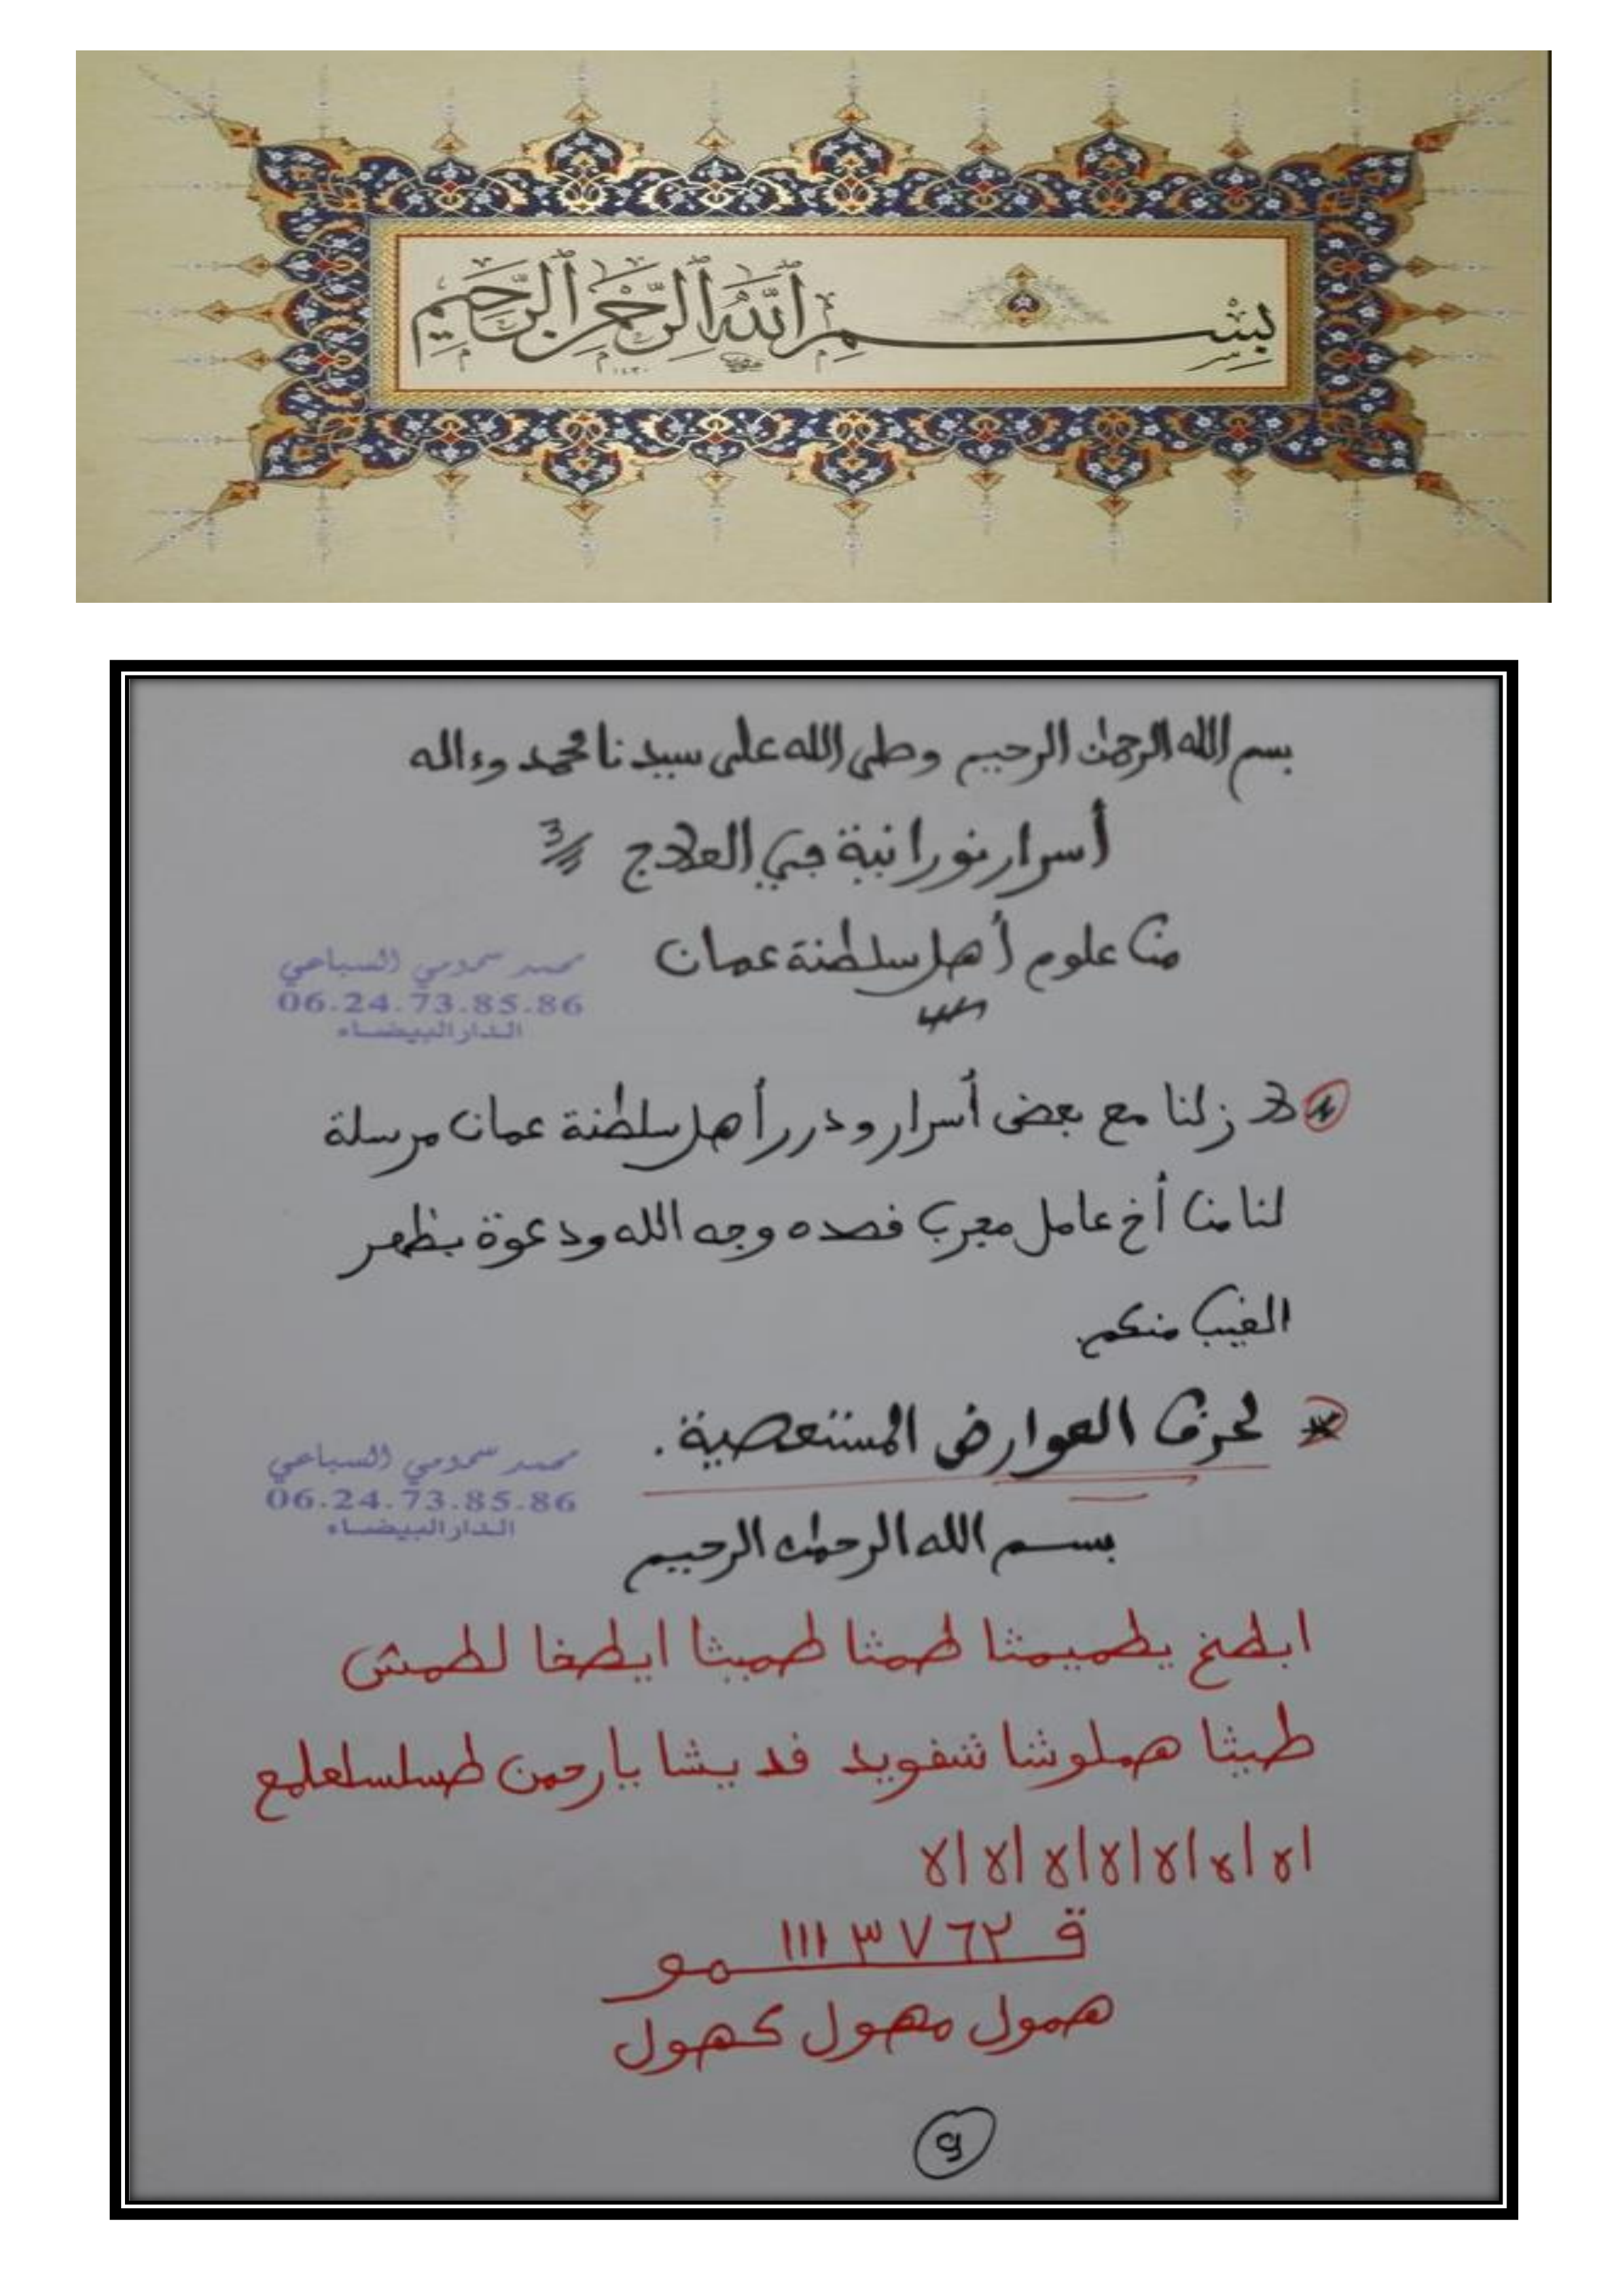 بسم الله الرحمن الرحيم
بسم الله الرحمن الرحيم وصلى الله على سيدنا محمد وءاله
أسرار نورانية في العلاج 3
من علوم أهل سلطنة عمان
محمد سمومي السباعي
06.24.73.85.86
الدار البيضاء
لا زلنا مع بعض أسرار ودرر أهل سلطنة عمان مرسلة
لنا من أخ عامل مجرب قصده وجه الله ودعوة بظهر
الغيب منكم.
لحرق العوارض المستعصية.
محمد سمومي السباعي
06.24.73.85.86
الدار البيضاء
بسم الله الرحمن الرحيم
ابطخ يطميمثا طمثا طميثا ايطخا لطمش
طيثا هملوشا شفويد قديشا يا رحمن طسلسلعلمع
اه اه اه اه اه اه اه
ق ٢ ٦ ٧ ٣ ١١١ مو
همول مهول كهول